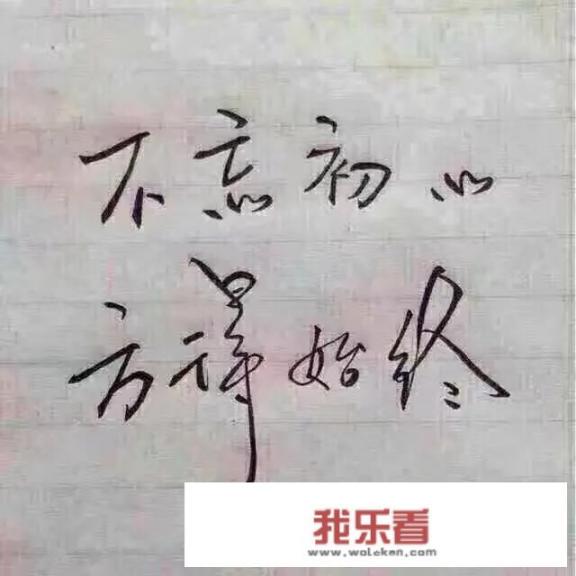 不忘初心
方得始终
我乐看
www.woleken.com